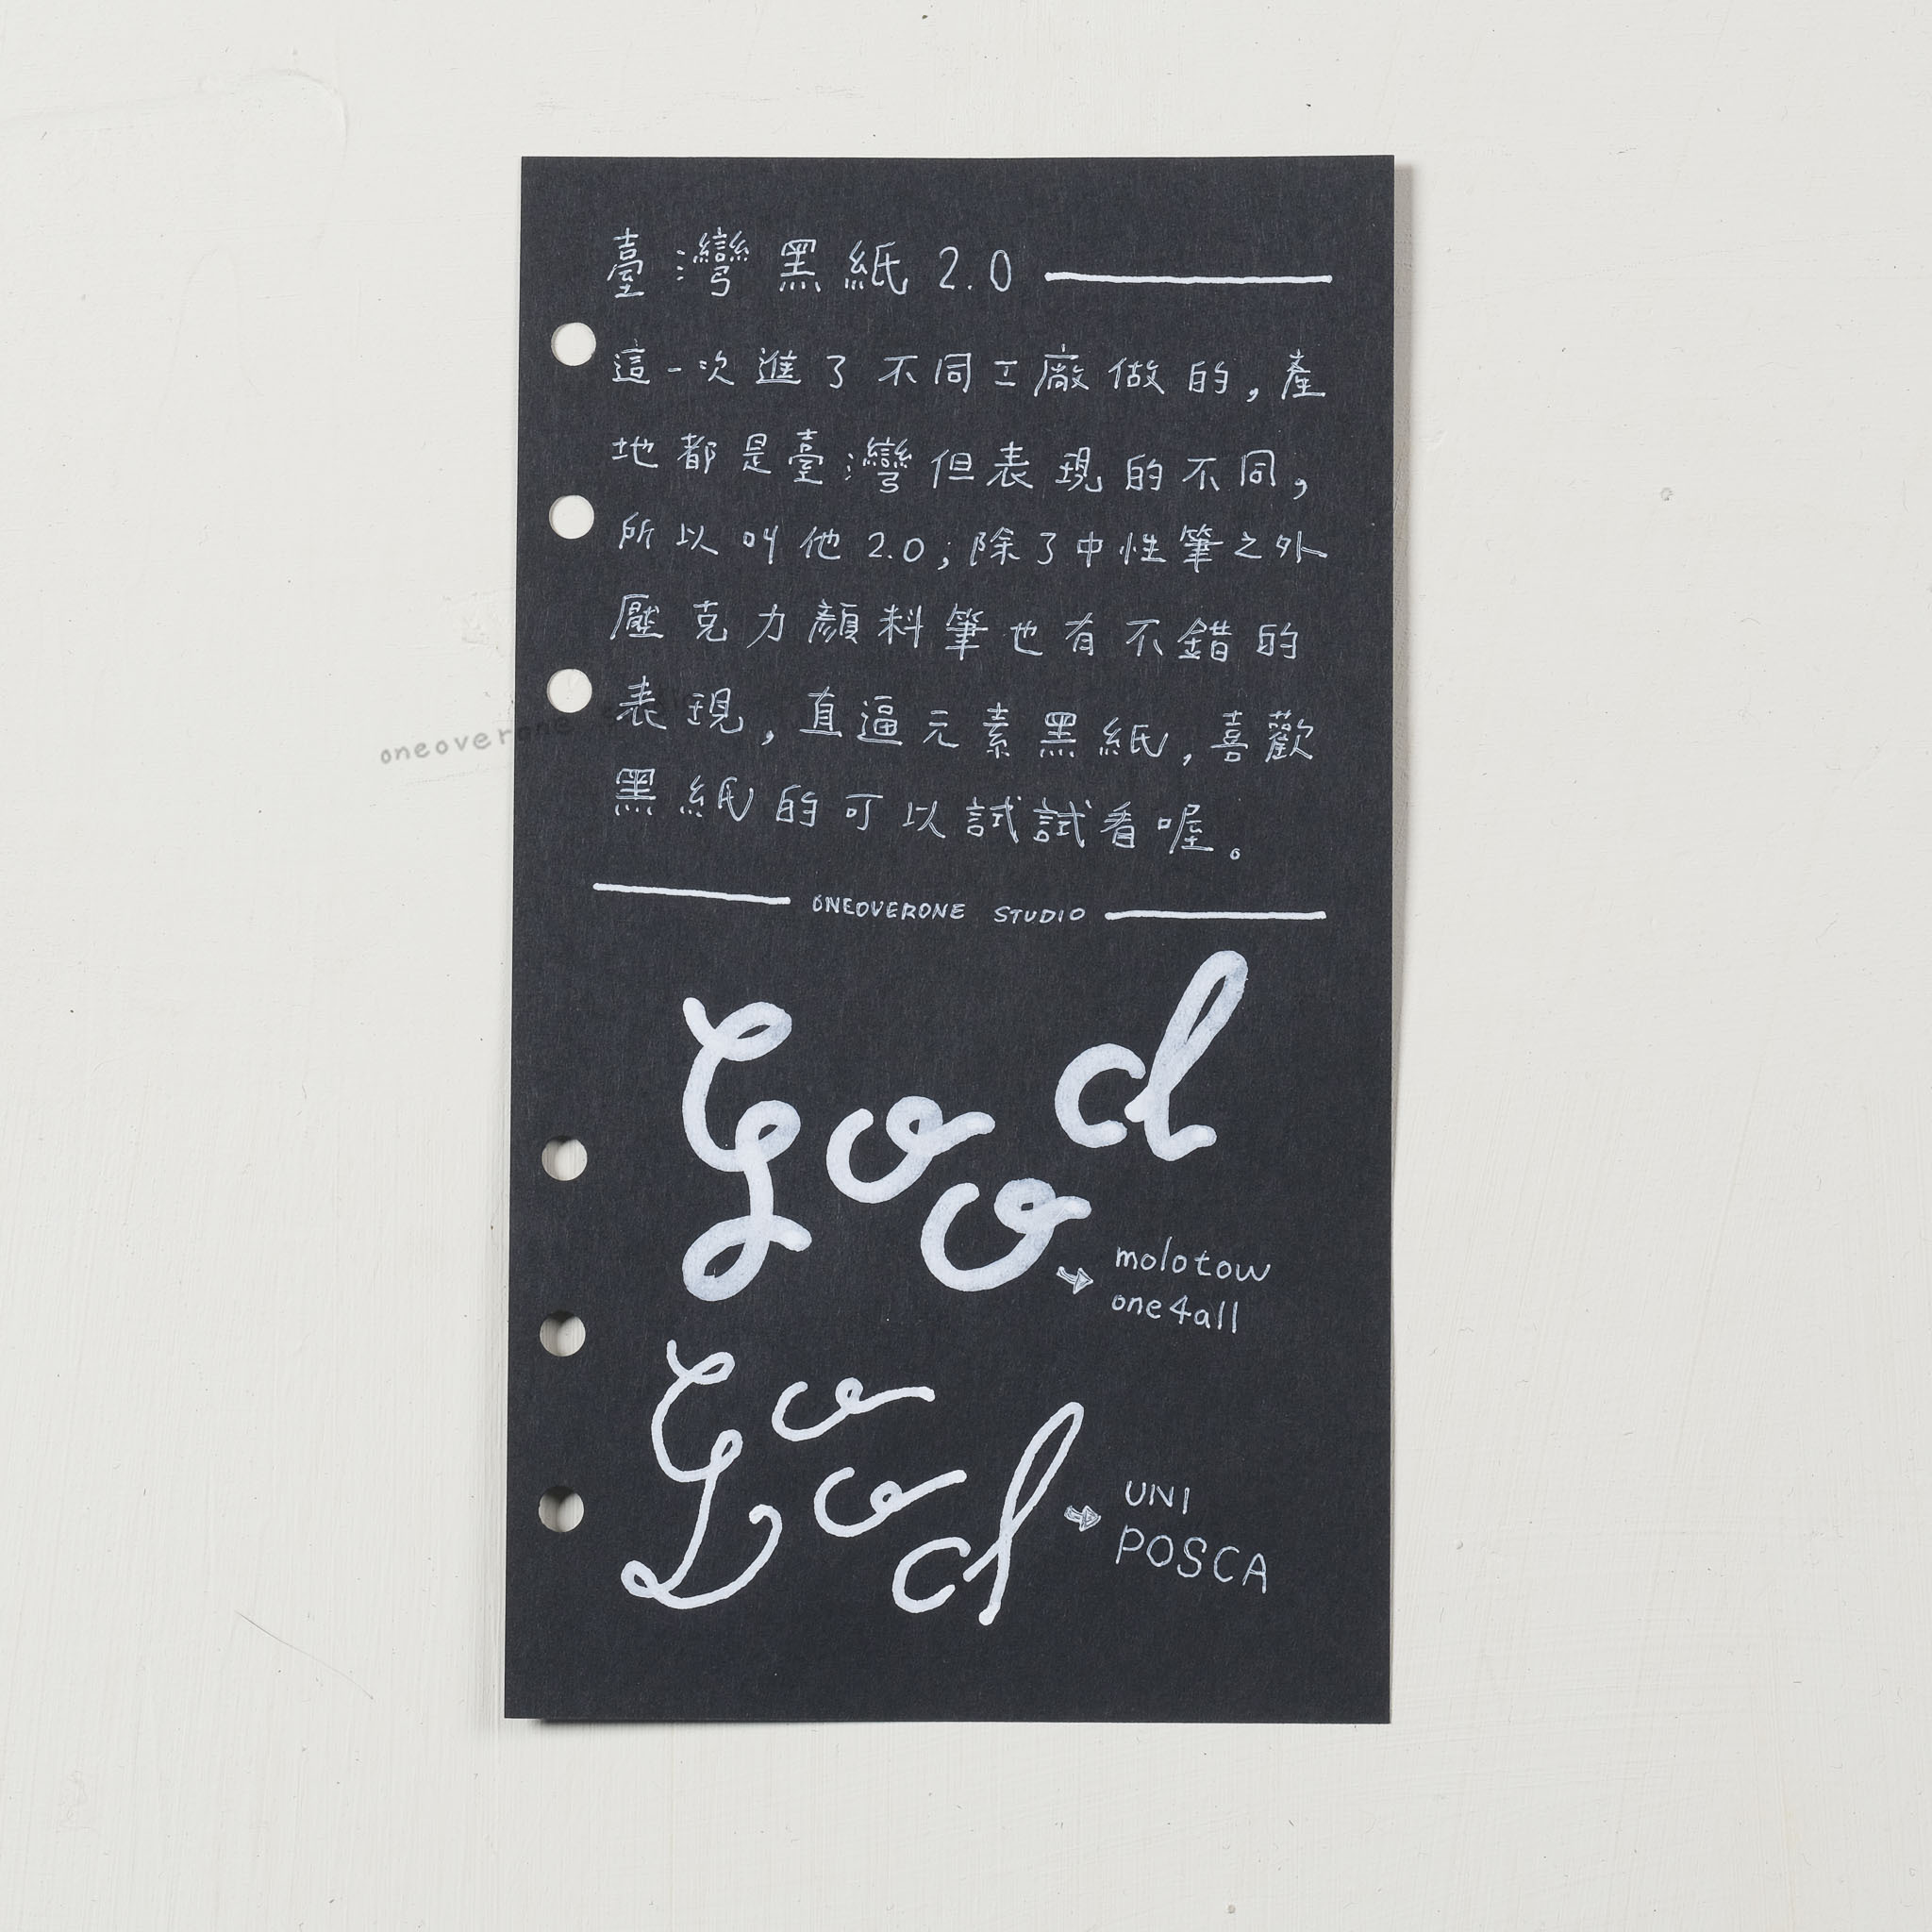 臺灣黑紙 2.0
這一次進了不同工廠做的,產
地都是臺灣但表現的不同,
所以叫他2.0;除了中性筆之外
壓克力顏料筆也有不錯的
表現,直逼元素黑紙,喜歡
黑紙的可以試試看喔。
ONEOVERONE STUDIO
Good
molotow
one4all
Good
UNI
POSCA
oneoverone